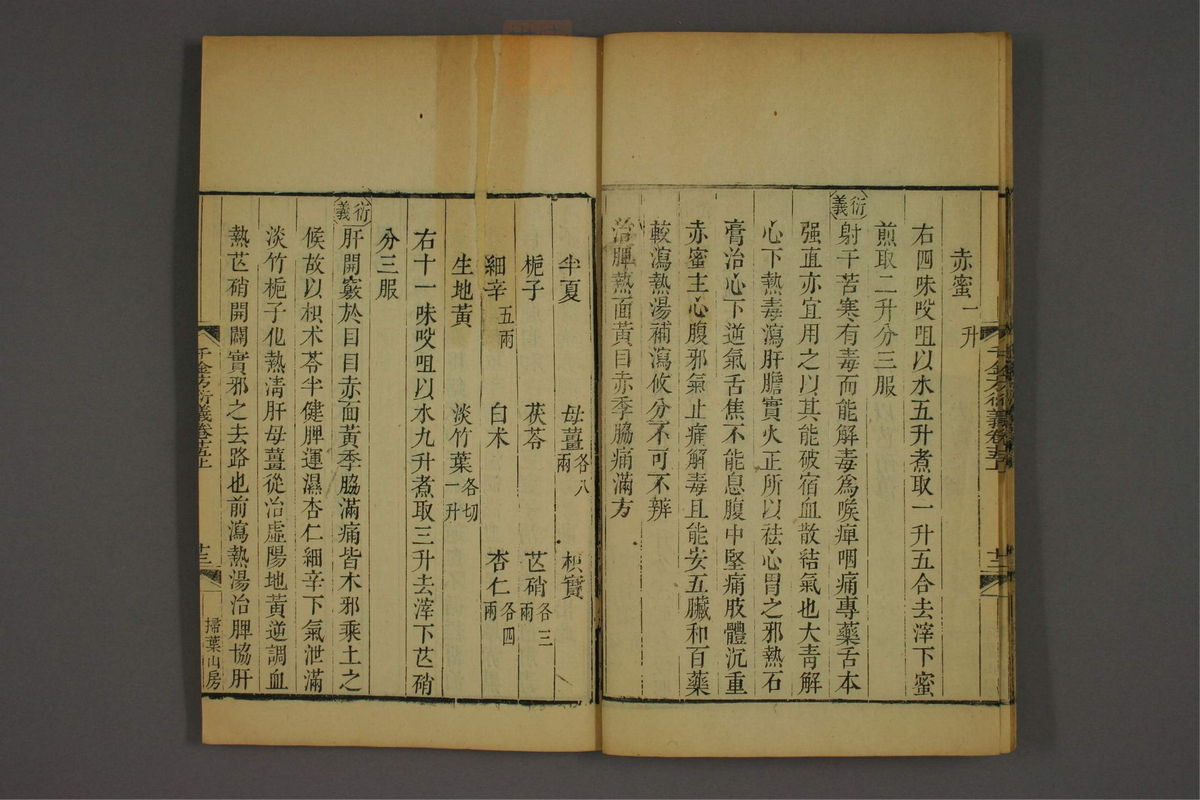 赤蜜一升
右四味㕮咀以水五升煮取一升五合去滓下蜜
煎取二升分三服
衍義
射干苦寒有毒而能解毒爲喉痺咽痛專藥舌本
强直亦宜用之以其能破宿血散結氣也大青解
心下熱毒瀉肝膽實火正所以祛心胃之邪熱石
膏治心下逆氣舌焦不能息腹中堅痛肢體沉重
赤蜜主心腹邪氣止痛解毒且能安五臟和百藥
較瀉熱湯補瀉攸分不可不辨
治脾熱面黃目赤季脇痛滿方
千金方衍義卷十五上
半夏 母薑各八兩 枳實
梔子 茯苓 芒硝各三兩
細辛五兩 白朮 杏仁各四兩
生地黃 淡竹葉各切一升
右十一味㕮咀以水九升煮取三升去滓下芒硝
分三服
衍義
肝開竅於目目赤面黃季脇滿痛皆木邪乘土之
候故以枳朮苓半健脾運濕杏仁細辛下氣泄滿
淡竹梔子化熱淸肝母薑從治虛陽地黃逆調血
熱芒硝開闢實邪之去路也前瀉熱湯治脾協肝
千金方衍義卷十五上
廿三
掃葉山房